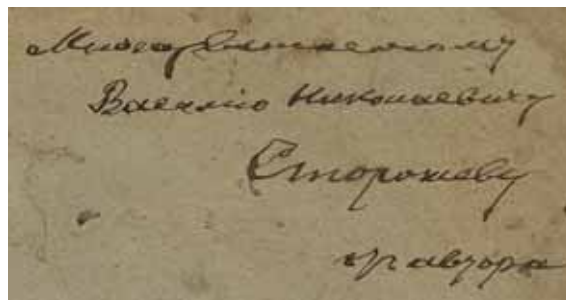 Многоуважаемому
Василию Николаевичу
Сторожеву
от автора